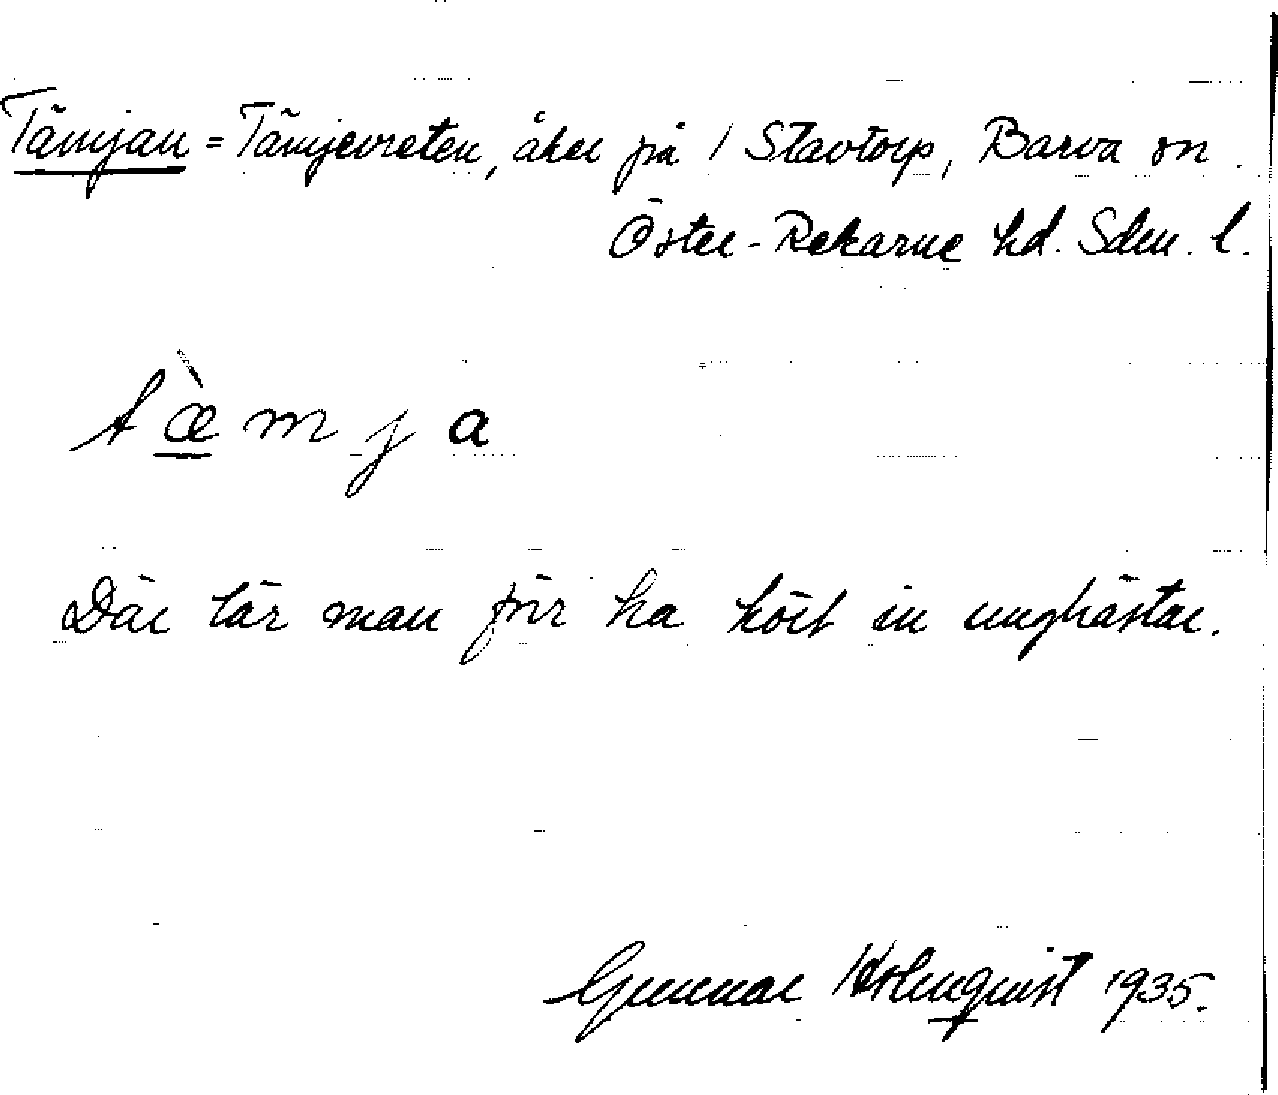 Tämjan = Tämjevreten, åker på 1 Stavtorp, Barva sn.
Öster-Rekarne hd. Sdm. l.
tæ̀mja
Där lär man förr ha kört in unghästar.
Gunnar Holmquist 1935.